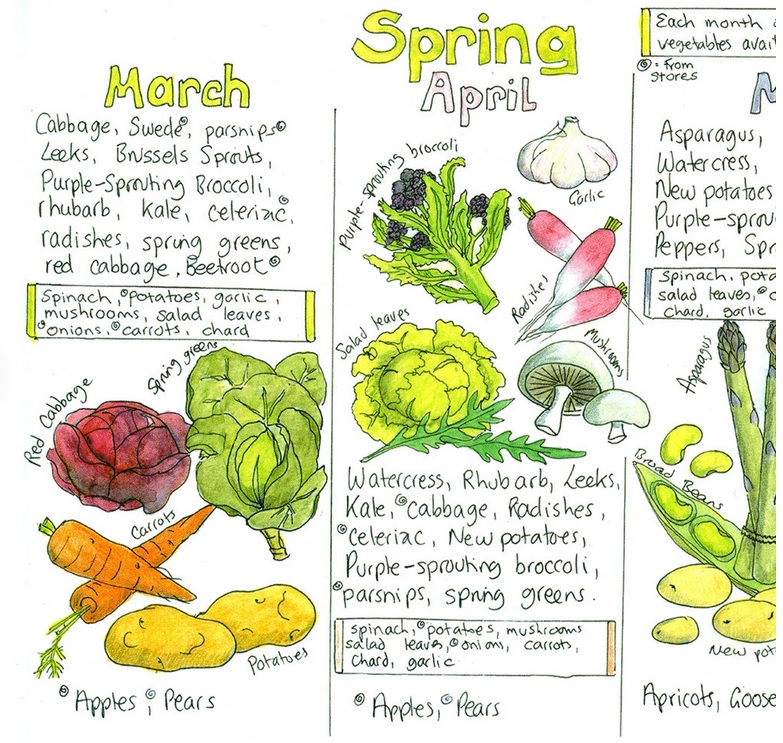 Spring
March
Cabbage, Swede, parsnips
Leeks, Brussels Sprouts,
Purple-Sprouting Broccoli,
rhubarb, kale, celeriac,
radishes, spring greens,
red cabbage, Beetroot
spinach, potatoes, garlic,
mushrooms, salad leaves,
onions, carrots, chard
Red Cabbage
Spring greens
Carrots
Potatoes
Apples, Pears
April
Purple-sprouting broccoli
Garlic
Radishes
Salad leaves
Mushrooms
Watercress, Rhubarb, Leeks,
Kale, cabbage, Radishes,
celeriac, New potatoes,
Purple-sprouting broccoli,
parsnips, spring greens.
spinach, potatoes, mushrooms
salad leaves, onions, carrots,
chard, garlic
Apples, Pears
Each month
vegetables avai
= from
stores
M
Asparagus,
Watercress,
New potatoes
Purple-sprou
Peppers, Spr
spinach, pota
salad leaves,
chard, garlic
Asparagus
Broad Beans
New pot
Apricots, Goose